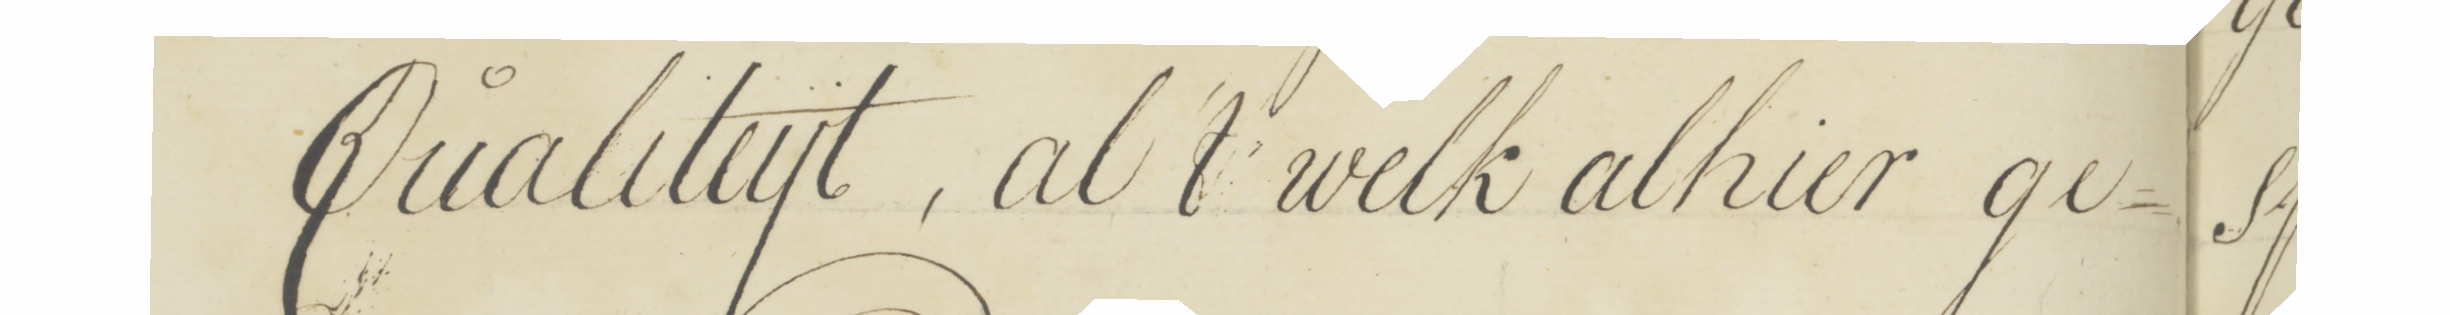 Qualiteijt, al 't welk alhier ge=